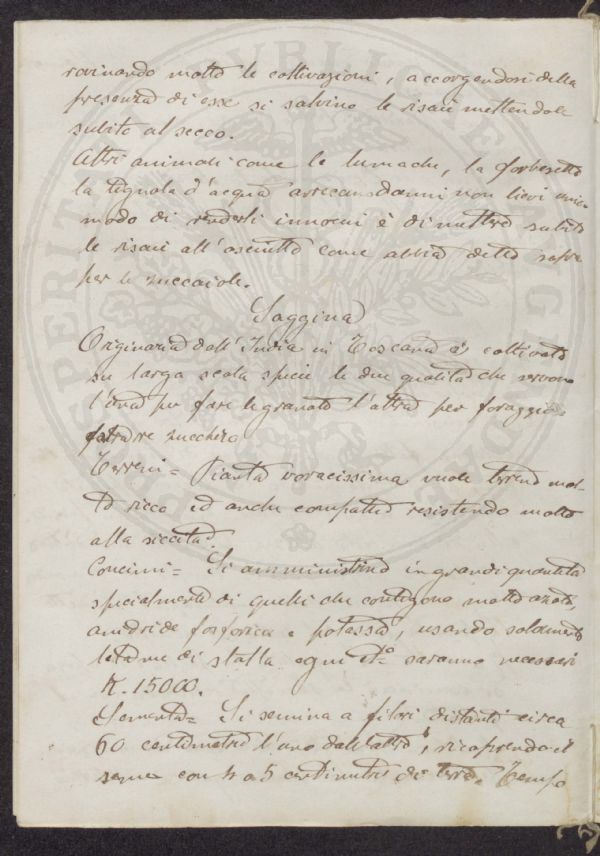 rovinando molto le coltivazioni, accorgendosi della
presenza di esse si salvino le risaie mettendole
subito al secco.
Altri animali come le lumache, la forbicetta
la tignola d'acqua arrecano danni non lievi unico
modo di renderli innocui è di mettere subito
le risaie all'asciutto come abbia detto sopra
per le zuccaiole.
Saggina
Originaria dall'India in Toscana è coltivata
su larga scala specie le due qualità che servono
l'una per fare le granate l'altra per foraggio
zucchero
Terreni = Pianta voracissima vuole terreno mol-
to ricco ed anche compatto resistendo molto
alla siccità.
Concimi = Si amministrino in grandi quantità
specialmente di quelli che contegono molto azoto,
anidride fosforica e potassa, usando solamente
letame di stalla ogni saranno necessari
K. 15000.
Sementa = Si semina a filari distanti circa
60 centimetri l'uno dall'altro, ricoprendo il
seme con 4 o 5 centimetri di terra. Tempo
PROSPERITATI PUBLICAE AUGENDAE